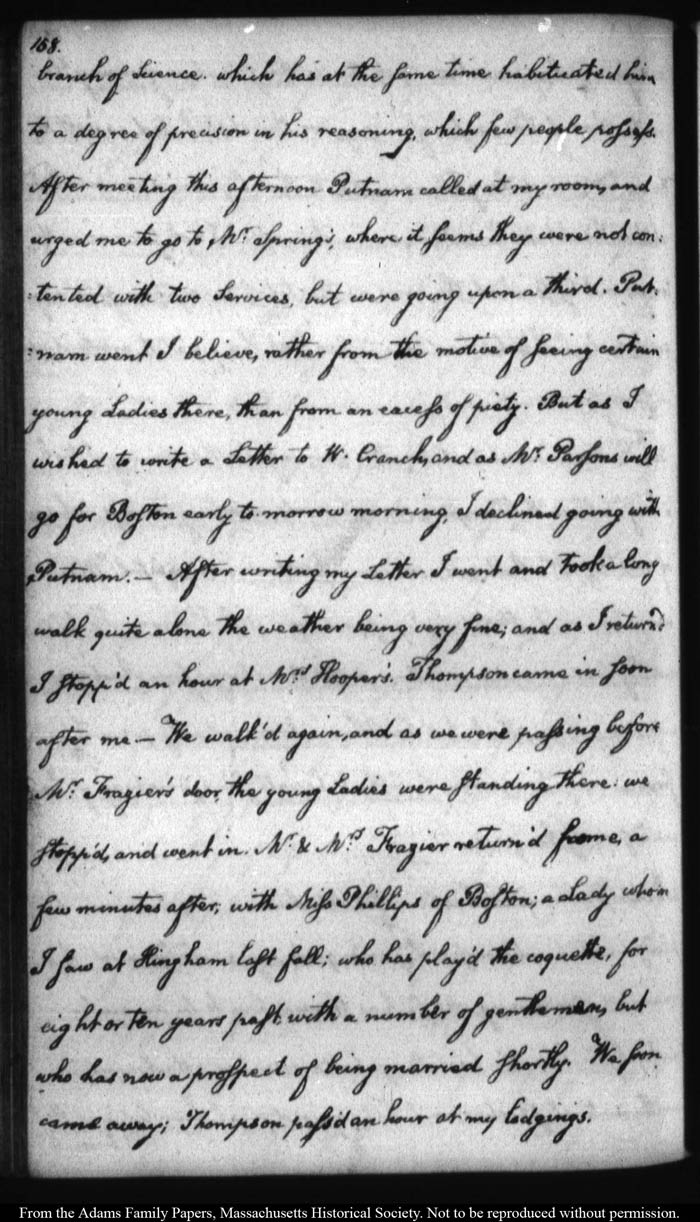 158.
branch of Science. which has at the same time habituated him
to a degree of precision in his reasoning, which few people possess.
After meeting this afternoon Putnam called at my room, and
urged me to go to Mr. Spring's, where it seems they were not con:
:tented with two Services, but were going upon a third. Put:
:nam went I believe, rather from the motive of seeing certain
young Ladies there, than from an excess of piety. But as I
wished to write a Letter to W. Cranch, and as Mr. Parsons will
go for Boston early to-morrow morning, I declined going with
Putnam. — After writing my Letter I went and took a long
walk quite alone the weather being very fine; and as I return'd
I stopp'd an hour at Mrs. Hooper's. Thompson came in soon
after me — We walk'd again, and as we were passing before
Mr. Frazier's door, the young Ladies were standing there: we
stopp'd, and went in. Mr. & Mrs. Frazier return'd home, a
few minutes after; with Miss Phillips of Boston; a Lady whom
I saw at Hingham last fall; who has play'd the coquette, for
eight or ten years past with a number of gentlemen, but
who has now a prospect of being married shortly. We soon
came away; Thompson pass'd an hour at my lodgings.
From the Adams Family Papers, Massachusetts Historical Society. Not to be reproduced without permission.